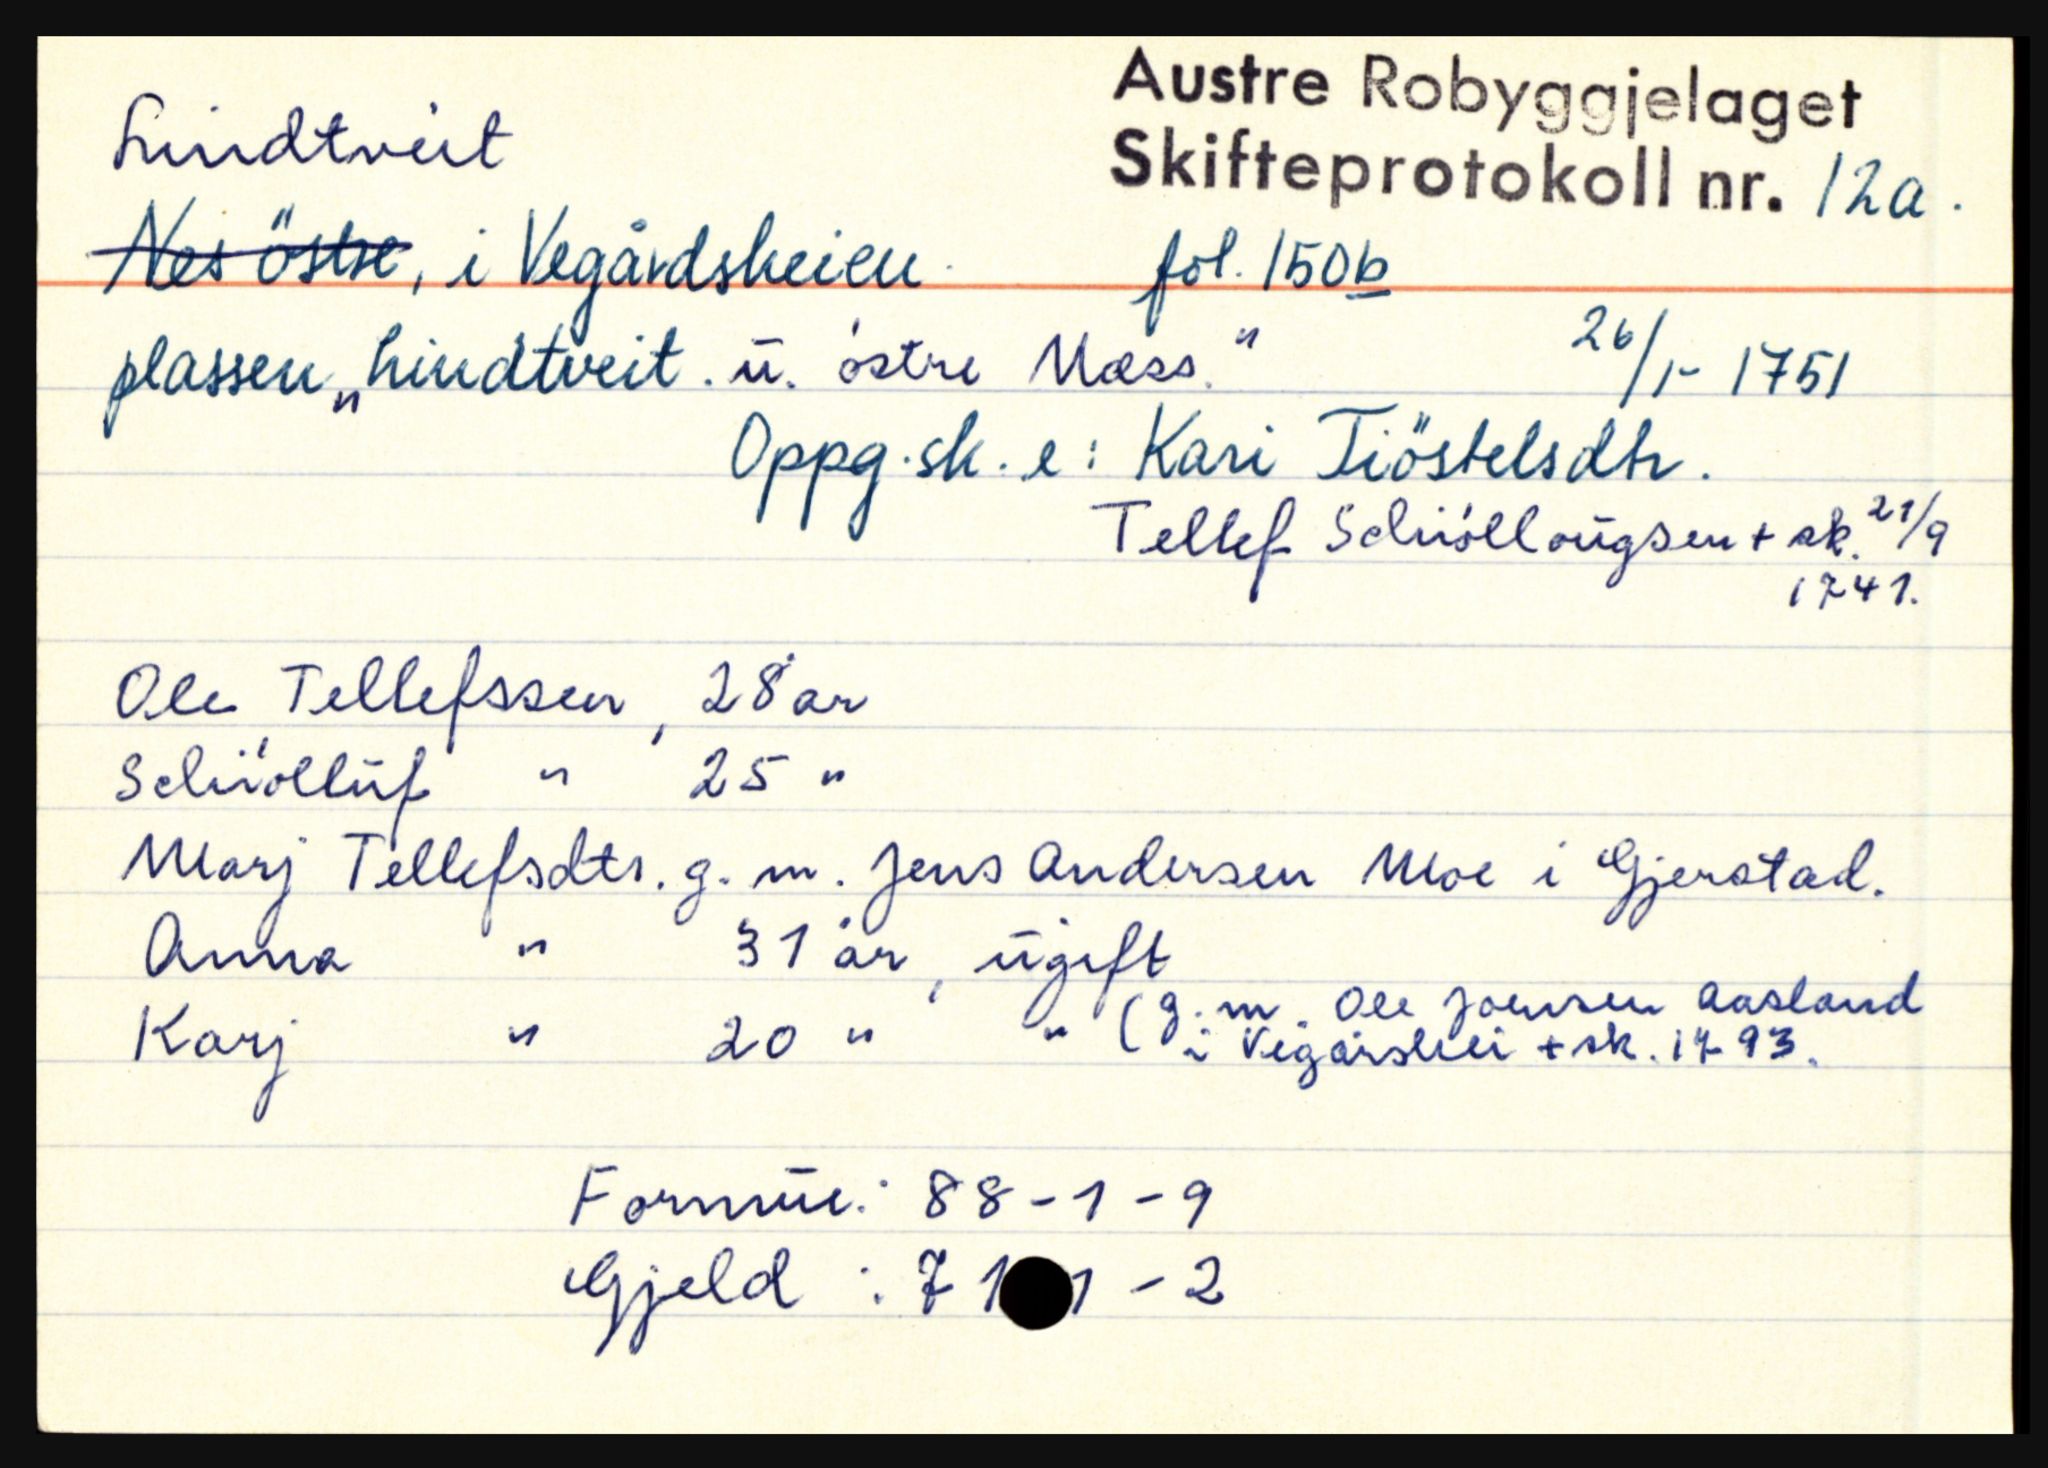 Austre Robyggjelaget
Lindtveit
Skifteprotokoll nr. 12a.
Nes östre, i Vegårdsheien fol. 150b
plassen „Lindtveit. u. östre Næss." 26/1- 1751
Oppg. sk. e: Kari Tiöstelsdtr.
Tellef Schiöllougsen + sk. 21/9
1741.
Ole Tellefssen, 28 år
Schiölluf " 25 "
Marj Tellefsdtr. g. m. Jens Andersen Moe i Gjerstad.
Anna " 31 år, ugift
Karj " 20 " " (g. m. Ole Joensen Aasland
i Vegårshei + sk. 1793.
Formue: 88-1-9
Gjeld : 71 1-2